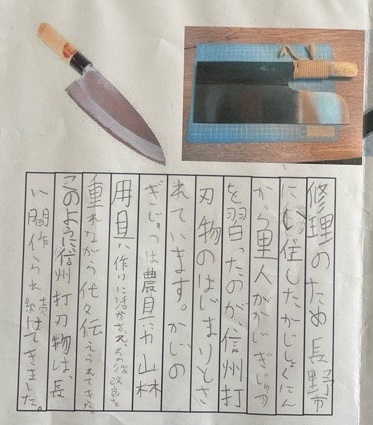 修理のため長野市
にい住したかじしょくにん
から里人がかじぎじゅつ
を習ったのが信州打
刃物のはじまりとさ
れています。かじの
ぎじゅつは農具や山林
用具作りに活かされ、その後改良を
重ねながら代々伝えられてきた
このように信州打刃物は、長
い間作られ続けてきました。